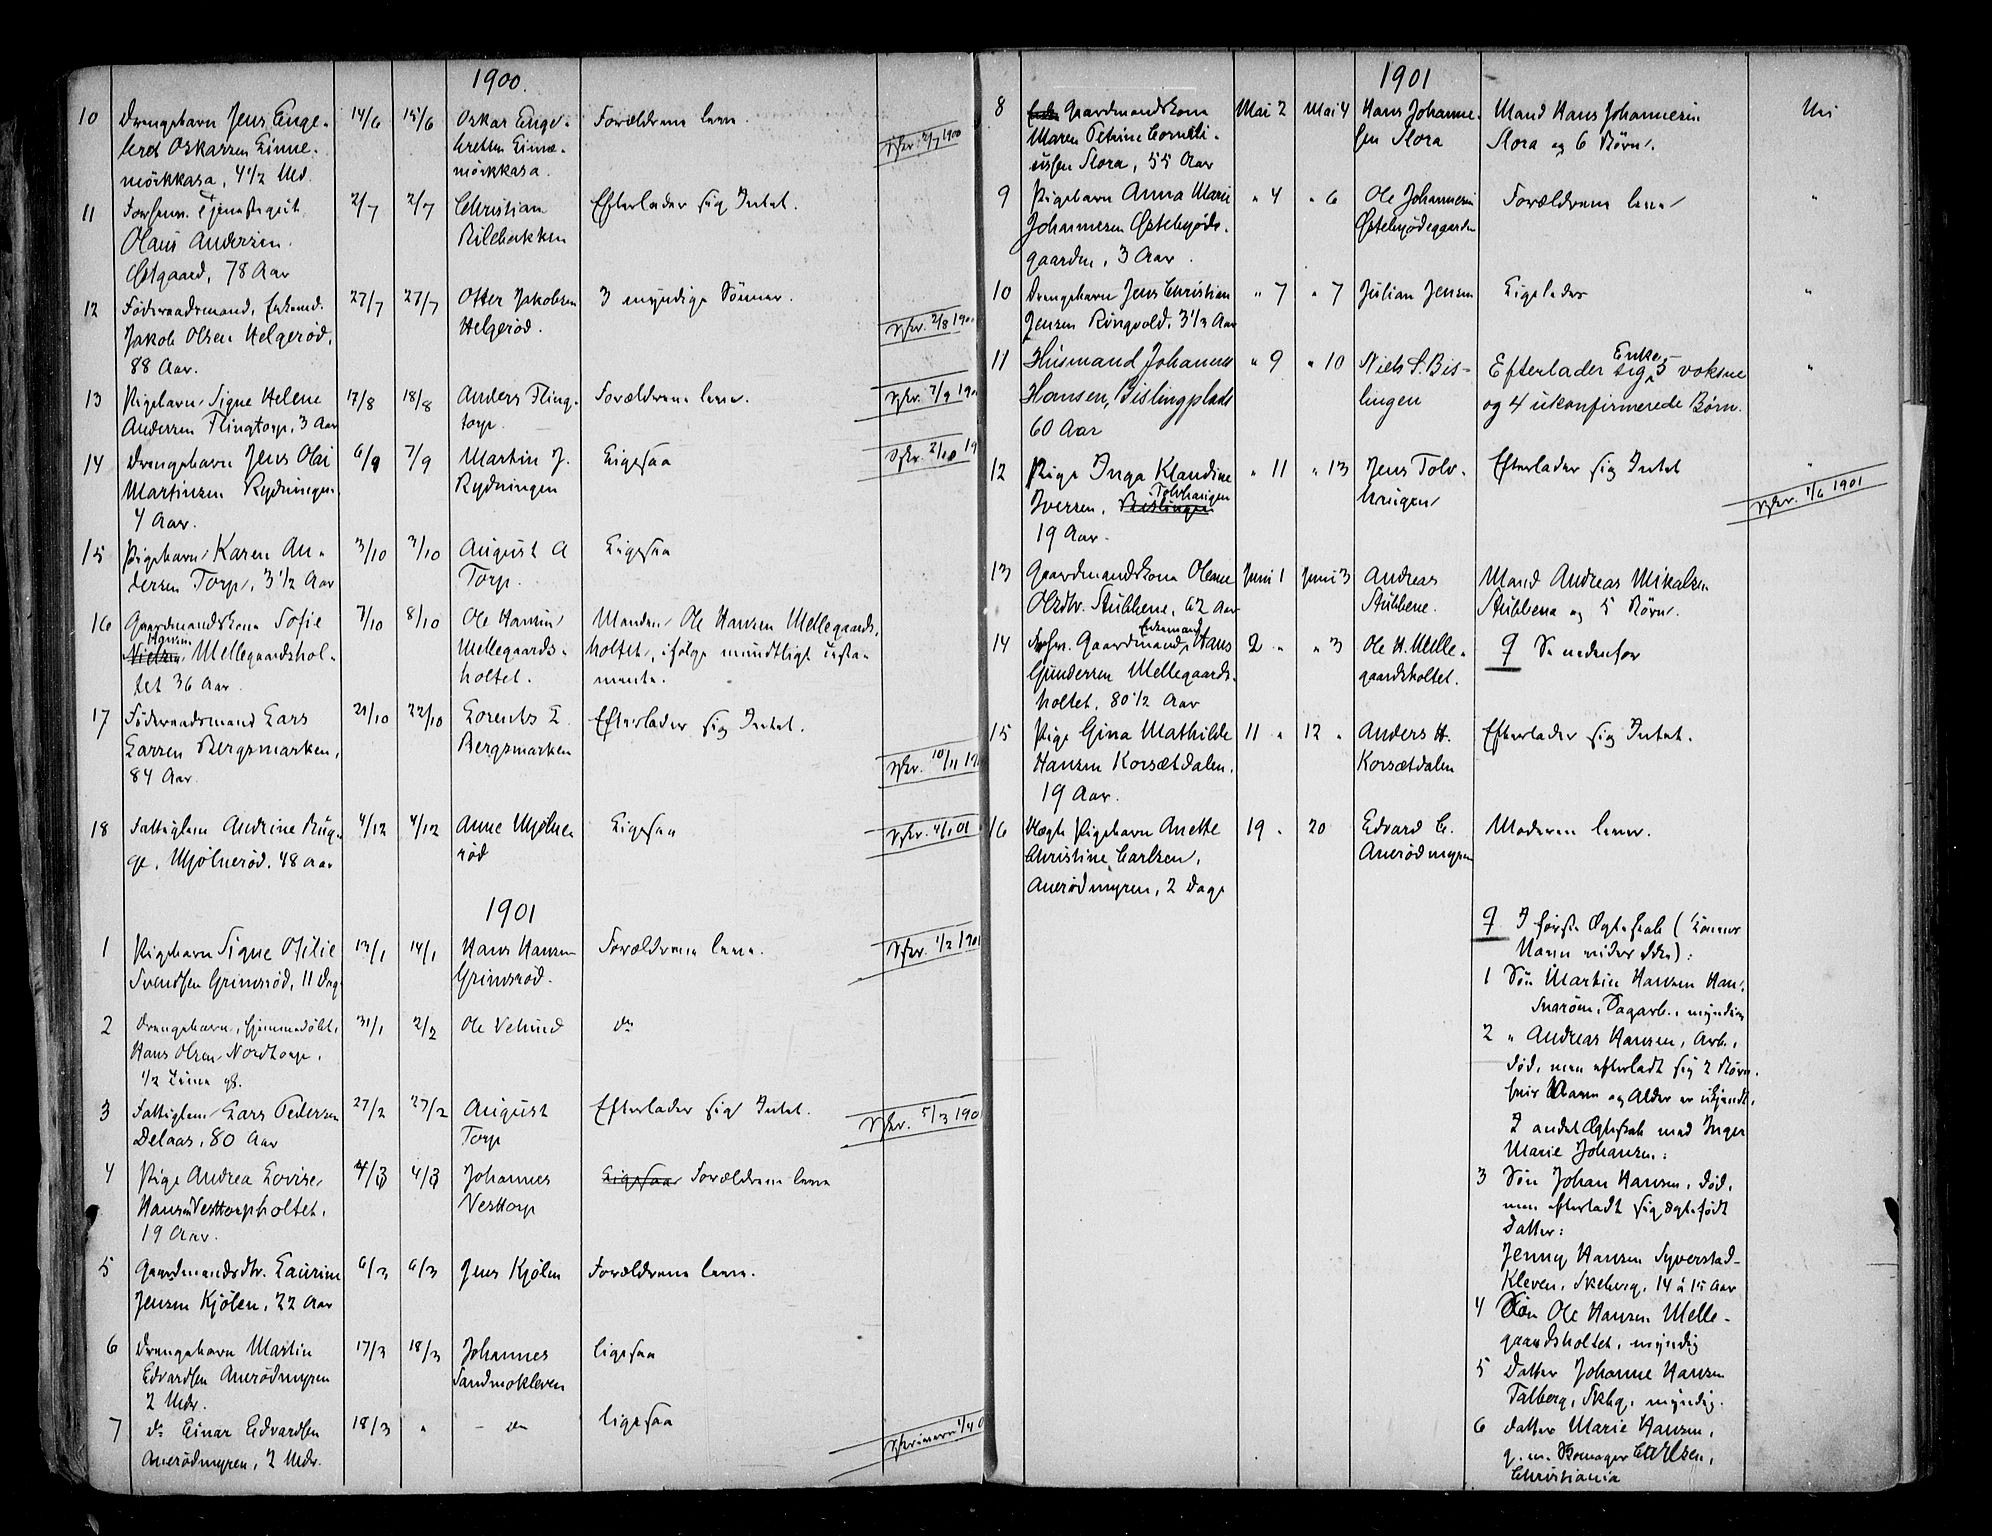 1900.
10 Drengebarn Jens Enge- 14/6 15/6 Oskar Enge- Forældrene leve.
bret Oskarsen Linne- bretsen Linne-
mörkkasa, 4 1/2 Md. mörkkasa.
Skr. 2/7 1900
11 Forhenv. Tjenestegut 2/7 2/7 Christian Efterlader sig Intet.
Olaus Andersen
Östgaard, 78 Aar
12 Föderaadsmand, Enkemd. 27/7 27/7 Otter Jakobsen 3 myndige Sönner.
Jakob Olsen Helgeröd, Helgeröd.
88 Aar.
Skr. 2/8 190
13 Pigebarn Signe Helene 17/8 18/8 Anders Fling- Forældrene leve.
Andersen Flingtorp, 3 Aar torp.
Skr. 7/9 190
14 Drengebarn Jens Olai 6/9 7/9 Martin J. Ligesaa
Martinsen Rydningen Rydningen
4 Aar.
Skr. 2/10 19
15 Pigebarn Karen An- 3/10 3/10 August A Ligesaa
dersen Torp, 3 1/2 Aar Torp.
16 Gaardmandskone Sofie 7/10 8/10 Ole Hansen Manden Ole Hansen Mellegaards-
Hansen
Nielsen, Mellegaardshol- Mellegaards- holtet, ifølge mundtligt testa-
tet 36 Aar. holtet. mente.
17 Föderaadsmand Lars 21/10 22/10 Lorents L. Efterlader sig Intet.
Larsen Bergsmarken, Bergsmarken
84 Aar.
Skr. 10/11 19
18 Fattiglem Andrine Bug- 4/12 4/12 Anne Mjølne- Ligesaa
ge, Mjølneröd. 48 Aar röd
Skr. 4/1 01
1901
1 Pigebarn Signe Otilie 13/1 14/1 Hans Hansen Forældrene leve.
Svendsen Grimsröd, 11 Dag Grimsröd.
Skr. 1/2 1901
2 Drengebarn, hjemmedöbt, 31/1 2/2 Ole Velund do
Hans Olsen Nordtorp,
1/2 Time gl.
3 Fattiglem Lars Pedersen 27/2 27/2 August Efterlader sig Intet.
Delaas, 80 Aar Torp
Skr. 5/3 190
4 Pige Andrea Lovise 4/3 4/3 Johannes Ligesaa Forældrene leve
Hansen Vesttorpholtet, Vesttorp
19 Aar.
5 Gaardmandsdtr. Laurine 6/3 6/3 Jens Kjölen Forældrene leve.
Jensen Kjölen, 22 Aar
6 Drengebarn Martin 17/3 18/3 Johannes ligesaa
Edvardsen Anerödmyren Sandmokleven
2 Mdr.
7 do Einar Edvardsen 18/3 " - do ligesaa
Anerödmyren, 2 Mdr.
1901
8 Gaardmandskone Mai 2 Mai 4 Hans Johanne- Mand Hans Johannesen Nei
Maren Petrine Corneli- sen Slora Slora og 6 Børn.
ussen Slora, 55 Aar
9 Pigebarn Anna Marie " 4 " 6 Ole Johannesen Forældrene leve "
Johannesen Østebyöds- Østebyödegaarden
gaarden, 3 Aar.
10 Drengebarn Jens Christian " 7 " 7 Julian Jensen Ligeledes "
Jensen Ringvold, 3 1/3 Aar
11 Husmand Johannes " 9 " 10 Niels S. Bis- Efterlader sig Enke 5 voksne "
Hansen, Bislingplads lingen og 4 ukonfirmerede Børn.
60 Aar
12 Pige Inga Klaudine " 11 " 13 Jens Tolv- Efterlader sig Intet "
Tolvhaugen
Iversen, Bislingen haugen
19 Aar.
Skr. 1/6 1901
13 Gaardmandskone Olene Juni 1 Juni 3 Andreas Mand Andreas Mikalsen
Olsdtr. Stubbene, 62 Aar Stubbene. Stubbene og 5 Børn.
Enkemand
14 Forhen. Gaardmand, Hans 2 " " 3 Ole H. Melle- Se nedenfor
Gundersen Mellegaards- gaardsholtet.
holtet, 80 1/2 Aar
15 Pige Gina Mathilde 11 " 12 " Anders H. Efterlader sig Intet.
Hansen Korsætdalen, Korsætdalen
19 Aar.
16 Uægte Pigebarn Anette 19 " 20 Edvard C. Moderen lever.
Christine Carlsen, Anerödmyren
Anerödmyren, 2 Dage
I første Ægteskab (Konens
Navn vides ikke):
1 Sön Martin Hansen Han-
Sagarb., myndig
2 " Andreas Hansen, Arb.,
död, men efterladt sig 2 Børn.
hvis Navn og Alder er ukjendt.
I andet Ægteskab med Inger
Marie Johansen:
3 Sön Johan Hansen, död,
men efterladt sig ægtefödt
Datter:
Jenny Hansen Syverstad-
Kleven, Skeberg, 14 à 15 Aar
4 Sön Ole Hansen Melle-
gaardsholtet, myndig
5 Datter Johanne Hansen
Talberg, Skbg, myndig.
6 Datter Marie Hansen,
g. m. Carlsen,
Christiania